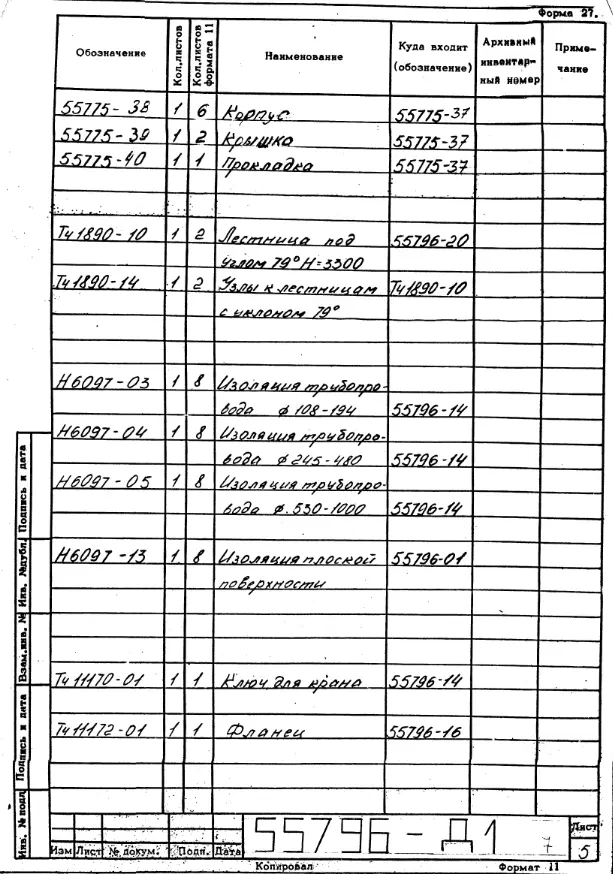 Форма 27.
Обозначение Кол.листов Кол.листов формата 11 Наименование Куда входит (обозначение) Архивный инвентар- ный номер Приме- чание
55775-38 1 6 Корпус 55775-37
55775-39 1 2 Крышка 55775-37
55775-40 1 1 Прокладка 55775-37
Тч1890-10 1 2 Лестница под 55796-20
углом 79° Н=3300
Тч1890-14 1 2 Узлы к лестницам Тч1890-10
с уклоном 79°
Н6097-03 1 8 Изоляция трубопро-
вода ф 108-194 55796-14
Н6097-04 1 8 Изоляция трубопро-
вода ф 245-480 55796-14
Н6097-05 1 8 Изоляция трубопро-
вода ф.530-1000 55796-14
Н6097-13 1 8 Изоляция плоской 55796-01
поверхности
Тч11170-01 1 1 Ключ для крана 55796-14
Тч11172-01 1 1 Фланец 55796-16
Инв. №подл Подпись и дата Взам.инв. № Инв. №дубл. Подпись и дата
55796-Д1 7
Лист
5
Изм Лист № докум. Подп. Дата
Копировал Формат 11